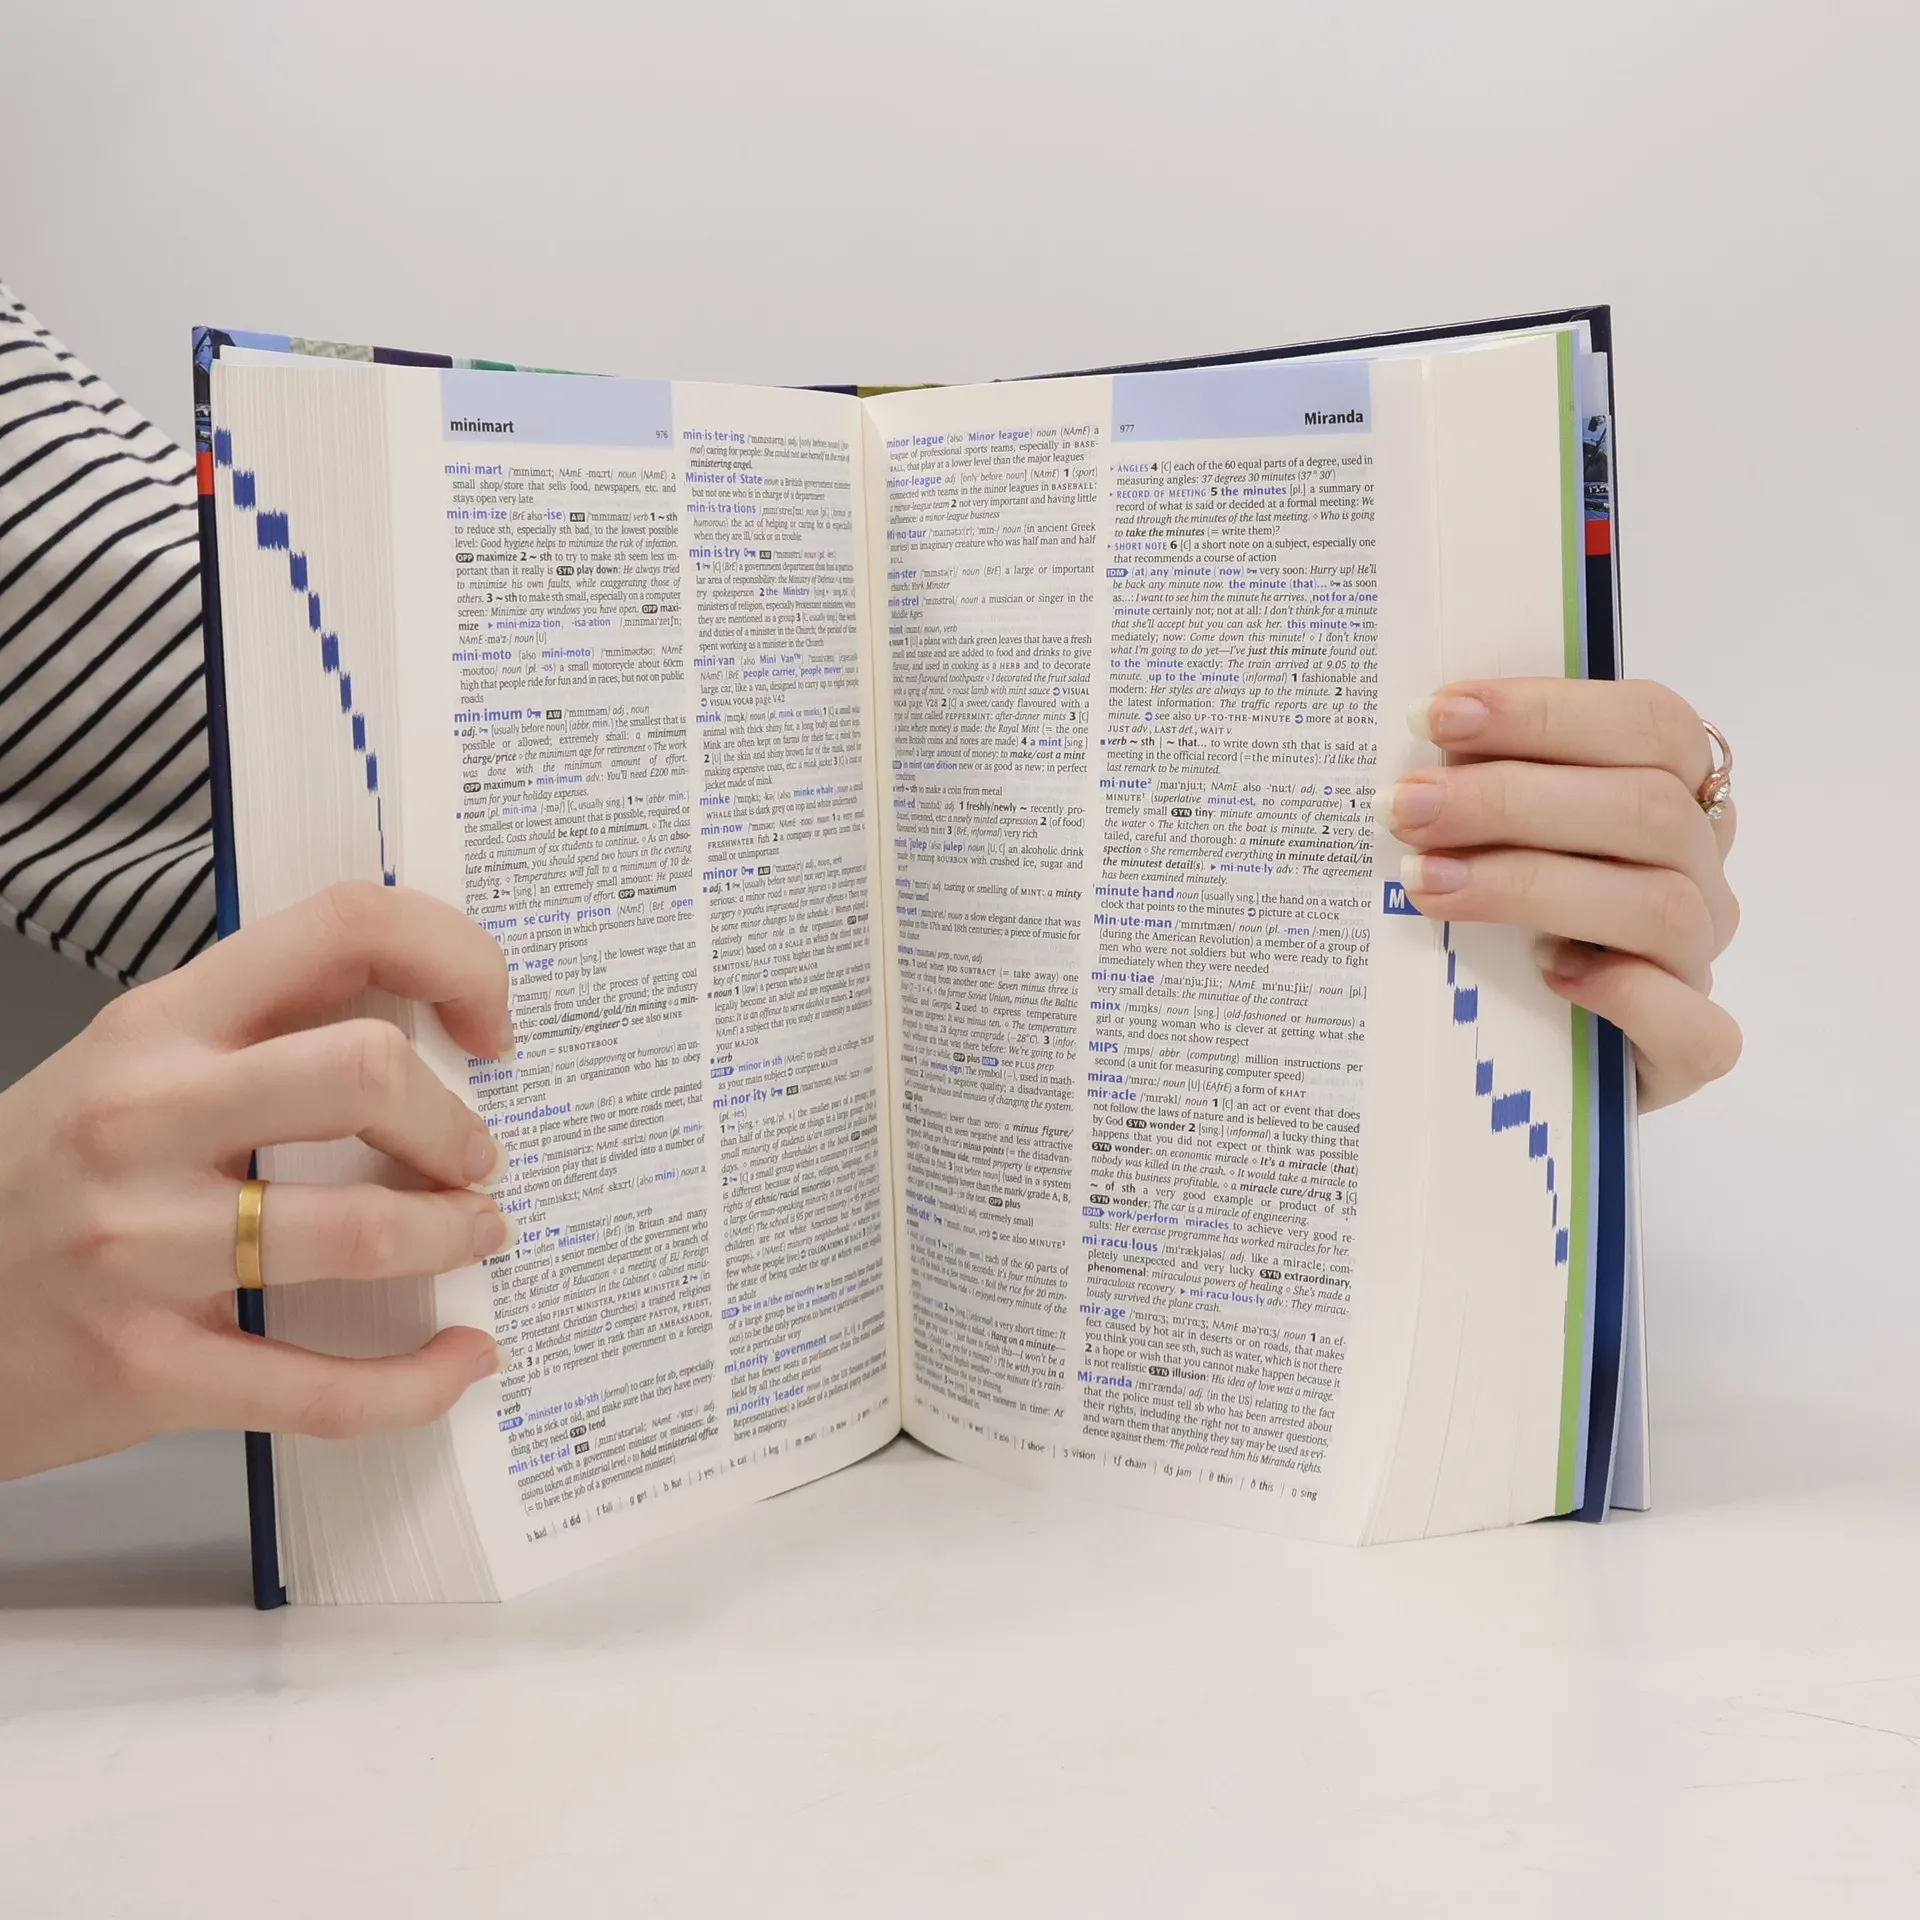 minimart
976
mini·mart /ˈmɪnimɑːt; NAmE -mɑːrt/ noun (NAmE) a
small shop/store that sells food, newspapers, etc. and
stays open very late
min·im·ize (BrE also -ise) AW /ˈmɪnɪmaɪz/ verb 1 ~ sth
to reduce sth, especially sth bad, to the lowest possible
level: Good hygiene helps to minimize the risk of infection.
OPP maximize 2 ~ sth to try to make sth seem less im-
portant than it really is SYN play down: He always tried
to minimize his own faults, while exaggerating those of
others. 3 ~ sth to make sth small, especially on a computer
screen: Minimise any windows you have open. OPP maxi-
mize ▸ mini·miza·tion, -isa·ation /ˌmɪnɪmaɪˈzeɪʃn;
NAmE -məˈz-/ noun [U]
mini-moto (also mini-moto) /ˈmɪniməʊtəʊ; NAmE
-moʊtoʊ/ noun (pl. -os) a small motorcycle about 60cm
high that people ride for fun and in races, but not on public
roads
min·imum AW /ˈmɪnɪməm/ adj., noun
▪ adj. [usually before noun] (abbr. min.) the smallest that is
possible or allowed; extremely small: a minimum
charge/price ⋄ the minimum age for retirement ⋄ The work
was done with the minimum amount of effort.
OPP maximum ▸ min·imum adv.: You'll need £200 min-
imum for your holiday expenses.
▪ noun (pl. min·ima /-mə/) [C, usually sing.] 1 (abbr. min.)
the smallest or lowest amount that is possible, required or
recorded: Costs should be kept to a minimum. ⋄ The class
needs a minimum of six students to continue. ⋄ As an abso-
lute minimum, you should spend two hours in the evening
studying. ⋄ Temperatures will fall to a minimum of 10 de-
grees. 2 [sing.] an extremely small amount: He passed
the exams with the minimum of effort. OPP maximum
imum seˈcurity prison (NAmE) (BrE ˌopen
noun a prison in which prisoners have more free-
in ordinary prisons
m ˈwage noun [sing.] the lowest wage that an
is allowed to pay by law
/ˈmaɪnɪŋ/ noun [U] the process of getting coal
minerals from under the ground; the industry
n this: coal/diamond/gold/tin mining ⋄ a min-
any/community/engineer ➲ see also MINE
noun = SUBNOTEBOOK
min·ion /ˈmɪniən/ noun (disapproving or humorous) an un-
important person in an organization who has to obey
orders; a servant
ini-ˈroundabout noun (BrE) a white circle painted
road at a place where two or more roads meet, that
ffic must go around in the same direction
a television play that is divided into a number of
arts and shown on different days
skirt /ˈmɪniskɜːt; NAmE -skɜːrt/ (also mini) noun a
ort skirt
ter /ˈmɪnɪstə(r)/ noun, verb
▪ noun 1 (often Minister) (BrE) (in Britain and many
other countries) a senior member of the government who
is in charge of a government department or a branch of
one: the Minister of Education ⋄ a meeting of EU Foreign
Ministers ⋄ senior ministers in the Cabinet ⋄ cabinet minis-
ters ➲ see also FIRST MINISTER, PRIME MINISTER 2 (in
some Protestant Christian Churches) a trained religious
der: a Methodist minister ➲ compare PASTOR, PRIEST,
CAR 3 a person, lower in rank than an AMBASSADOR,
whose job is to represent their government in a foreign
country
▪ verb
PHR V ˈminister to sb/sth (formal) to care for sb, especially
sb who is sick or old, and make sure that they have every-
thing they need SYN tend
min·is·ter·ial AW /ˌmɪnɪˈstɪəriəl; NAmE -ˈstɪr-/ adj.
connected with a government minister or ministers: de-
cisions taken at ministerial level ⋄ to hold ministerial office
(= to have the job of a government minister)
min·is·ter·ing /ˈmɪnɪstərɪŋ/ adj. [only before noun] (for-
mal) caring for people: She could not see herself in the role of
ministering angel.
Minister of ˈState noun a British government minister
but not one who is in charge of a department
min·is·tra·tions /ˌmɪnɪˈstreɪʃnz/ noun [pl.] (formal or
humorous) the act of helping or caring for sb especially
when they are ill/sick or in trouble
min·is·try AW /ˈmɪnɪstri/ noun (pl. -ies)
1 [C] (BrE) a government department that has a particu-
lar area of responsibility: the Ministry of Defence ⋄ a minis-
try spokesperson 2 the Ministry [sing.+ sing./pl. v.]
ministers of religion, especially Protestant ministers, when
they are mentioned as a group 3 [C, usually sing.] the work
and duties of a minister in the Church; the period of time
spent working as a minister in the Church
mini·van (also Mini Van™) /ˈmɪnivæn/ (especially
NAmE) (BrE ˈpeople carrier, ˈpeople mover) noun a
large car, like a van, designed to carry up to eight people
➲ VISUAL VOCAB page V42
mink /mɪŋk/ noun (pl. mink or minks) 1 [C] a small wild
animal with thick shiny fur, a long body and short legs.
Mink are often kept on farms for their fur: a mink farm
2 [U] the skin and shiny brown fur of the mink, used for
making expensive coats, etc: a mink jacket 3 [C] a coat or
jacket made of mink
minke /ˈmɪŋki; -kə/ (also minke whale) noun a small
WHALE that is dark grey on top and white underneath
min·now /ˈmɪnəʊ; NAmE -noʊ/ noun 1 a very small
FRESHWATER fish 2 a company or sports team that is
small or unimportant
minor AW /ˈmaɪnə(r)/ adj., noun, verb
▪ adj. 1 [usually before noun] not very large, important or
serious: a minor road ⋄ minor injuries ⋄ to undergo minor
surgery ⋄ youths imprisoned for minor offences ⋄ There may
be some minor changes to the schedule. ⋄ Women played a
relatively minor role in the organization. OPP major
2 (music) based on a SCALE in which the third note is a
SEMITONE/HALF TONE higher than the second note: the
key of C minor ➲ compare MAJOR
▪ noun 1 (law) a person who is under the age at which you
legally become an adult and are responsible for your ac-
tions: It is an offence to serve alcohol to minors. 2 (especially
NAmE) a subject that you study at university in addition to
your MAJOR
▪ verb
PHR V ˈminor in sth (NAmE) to study sth at college, but not
as your main subject ➲ compare MAJOR
mi·nor·ity AW
(pl. -ies)
1 [sing.+ sing./pl. v.] the smaller part of a group; less
than half of the people or things in a large group: Only a
small minority of students is/are interested in politics these
days. ⋄ minority shareholders in the bank OPP majority
2 [C] a small group within a community or country that
is different because of race, religion, language, etc: the
rights of ethnic/racial minorities ⋄ minority languages ⋄
a large German-speaking minority in the east of the country
⋄ (NAmE) The school is 95 per cent minority
children are not white Americans but from different
groups). ⋄ (NAmE) minority neighborhoods
few white people live) ➲ COLLOCATIONS at RACE 3 [U] (law)
the state of being under the age at which you are legally
an adult
IDM be in a/the miˈnority to form much less than half
of a large group be in a minority of ˈone (often humor-
ous) to be the only person to have a particular opinion or to
vote a particular way
miˌnority ˈgovernment noun [C, U] a government
that has fewer seats in parliament than the total number
held by all the other parties
miˌnority ˈleader noun (in the US Senate or House of
Representatives) a leader of a political party that does not
have a majority
b bad | d did | f fall | g get | h hat | j yes | k cat | l leg | m man | n now
Miranda
977
minor league (also ˈMinor league) noun (NAmE) a
league of professional sports teams, especially in BASE-
BALL, that play at a lower level than the major leagues
minor-league adj. [only before noun] (NAmE) 1 (sport)
connected with teams in the minor leagues in BASEBALL:
a minor-league team 2 not very important and having little
influence: a minor-league business
Mi·no·taur /ˈmaɪnətɔː(r); ˈmɪn-/ noun (in ancient Greek
stories) an imaginary creature who was half man and half
BULL
min·ster /ˈmɪnstə(r)/ noun (BrE) a large or important
church: York Minster
min·strel /ˈmɪnstrəl/ noun a musician or singer in the
Middle Ages
mint /mɪnt/ noun, verb
▪ noun 1 [U] a plant with dark green leaves that have a fresh
smell and taste and are added to food and drinks to give
flavour, and used in cooking as a HERB and to decorate
food: mint-flavoured toothpaste ⋄ I decorated the fruit salad
with a sprig of mint. ⋄ roast lamb with mint sauce ➲ VISUAL
VOCAB page V28 2 [C] a sweet/candy flavoured with a
type of mint called PEPPERMINT: after-dinner mints 3 [C]
a place where money is made: the Royal Mint (= the one
where British coins and notes are made) 4 a mint [sing.]
(informal) a large amount of money: to make/cost a mint
IDM in mint conˈdition new or as good as new; in perfect
condition
▪ verb ~ sth to make a coin from metal
mint·ed /ˈmɪntɪd/ adj. 1 freshly/newly ~ recently pro-
duced, invented, etc: a newly minted expression 2 (of food)
flavoured with mint 3 (BrE, informal) very rich
mint ˈjulep (also julep) noun [U, C] an alcoholic drink
made by mixing BOURBON with crushed ice, sugar and
MINT
minty /ˈmɪnti/ adj. tasting or smelling of MINT: a minty
flavour/smell
min·uet /ˌmɪnjuˈet/ noun a slow elegant dance that was
popular in the 17th and 18th centuries; a piece of music for
this dance
minus /ˈmaɪnəs/ prep., noun, adj.
▪ prep. 1 used when you SUBTRACT (= take away) one
number or thing from another one: Seven minus three is
four (7 - 3 = 4). ⋄ the former Soviet Union, minus the Baltic
republics and Georgia 2 used to express temperature
below zero degrees: It was minus ten. ⋄ The temperature
dropped to minus 28 degrees centigrade (−28°C). 3 (infor-
mal) without sth that was there before: We're going to be
minus a car for a while. OPP plus IDM see PLUS prep.
▪ noun 1 (also minus sign) The symbol (−), used in math-
ematics 2 (informal) a negative quality; a disadvantage:
Let's consider the pluses and minuses of changing the system.
OPP plus
▪ adj. 1 (mathematics) lower than zero: a minus figure/
number 2 making sth seem negative and less attractive
or good: What are the car's minus points (= the disadvan-
tages)? ⋄ On the minus side, rented property is expensive
and difficult to find. 3 [not before noun] (used in a system
of marks/grades) slightly lower than the mark/grade A, B,
etc: I got (a) B minus (B−) in the test. OPP plus
min·us·cule /ˈmɪnəskjuːl/ adj. extremely small
min·ute¹ /ˈmɪnɪt/ noun, verb ➲ see also MINUTE²
▪ noun
1 [C] (abbr. min.) each of the 60 parts of
an hour, that are equal to 60 seconds: It's four minutes to
six. ⋄ I'll be back in a few minutes. ⋄ Boil the rice for 20 min-
utes. ⋄ I enjoyed every minute of the
2 [sing.] (informal) a very short time: It
only takes a minute to make a salad. ⋄ Hang on a minute—
I'll be with you in a
3 [sing.] an exact moment in time: At
▸ ANGLES 4 [C] each of the 60 equal parts of a degree, used in
measuring angles: 37 degrees 30 minutes (37° 30′)
▸ RECORD OF MEETING 5 the minutes [pl.] a summary or
record of what is said or decided at a formal meeting: We
read through the minutes of the last meeting. ⋄ Who is going
to take the minutes (= write them)?
▸ SHORT NOTE 6 [C] a short note on a subject, especially one
that recommends a course of action
IDM (at) any ˈminute (ˈnow) very soon: Hurry up! He'll
be back any minute now. the minute (that)… as soon
as…: I want to see him the minute he arrives. ˌnot for a/one
ˈminute certainly not; not at all: I don't think for a minute
that she'll accept but you can ask her. this minute im-
mediately; now: Come down this minute! ⋄ I don't know
what I'm going to do yet—I've just this minute found out.
to the ˈminute exactly: The train arrived at 9.05 to the
minute. ˌup to the ˈminute (informal) 1 fashionable and
modern: Her styles are always up to the minute. 2 having
the latest information: The traffic reports are up to the
minute. ➲ see also UP-TO-THE-MINUTE ➲ more at BORN,
JUST adv., LAST det., WAIT v.
▪ verb ~ sth | ~ that… to write down sth that is said at a
meeting in the official record (=the minutes): I'd like that
last remark to be minuted.
mi·nute² /maɪˈnjuːt; NAmE also -ˈnuːt/ adj. ➲ see also
MINUTE¹ (superlative minut·est, no comparative) 1 ex
tremely small SYN tiny: minute amounts of chemicals in
the water ⋄ The kitchen on the boat is minute. 2 very de-
tailed, careful and thorough: a minute examination/in-
spection ⋄ She remembered everything in minute detail/in
the minutest detail(s). ▸ mi·nute·ly adv.: The agreement
has been examined minutely.
ˈminute hand noun [usually sing.] the hand on a watch or
clock that points to the minutes ➲ picture at CLOCK
Min·ute·man /ˈmɪnɪtmæn/ noun (pl. -men /-men/) (US)
(during the American Revolution) a member of a group of
men who were not soldiers but who were ready to fight
immediately when they were needed
mi·nu·tiae /maɪˈnjuːʃiiː; NAmE mɪˈnuːʃiiː/ noun [pl.]
very small details: the minutiae of the contract
minx /mɪŋks/ noun [sing.] (old-fashioned or humorous) a
girl or young woman who is clever at getting what she
wants, and does not show respect
MIPS /mɪps/ abbr. (computing) million instructions per
second (a unit for measuring computer speed)
miraa /ˈmɪrɑː/ noun [U] (EAfrE) a form of KHAT
mir·acle /ˈmɪrəkl/ noun 1 [C] an act or event that does
not follow the laws of nature and is believed to be caused
by God SYN wonder 2 [sing.] (informal) a lucky thing that
happens that you did not expect or think was possible
SYN wonder: an economic miracle ⋄ It's a miracle (that)
nobody was killed in the crash. ⋄ It would take a miracle to
make this business profitable. ⋄ a miracle cure/drug 3 [C]
~ of sth a very good example or product of sth
SYN wonder: The car is a miracle of engineering.
IDM work/perform ˈmiracles to achieve very good re-
sults: Her exercise programme has worked miracles for her.
mi·racu·lous /mɪˈrækjələs/ adj. like a miracle; com-
pletely unexpected and very lucky SYN extraordinary,
phenomenal: miraculous powers of healing ⋄ She's made a
miraculous recovery. ▸ mi·racu·lous·ly adv.: They miracu-
lously survived the plane crash.
mir·age /ˈmɪrɑːʒ; mɪˈrɑːʒ; NAmE məˈrɑːʒ/ noun 1 an ef-
fect caused by hot air in deserts or on roads, that makes
you think you can see sth, such as water, which is not there
2 a hope or wish that you cannot make happen because it
is not realistic SYN illusion: His idea of love was a mirage.
Mi·randa /mɪˈrændə/ adj. (in the US) relating to the fact
that the police must tell sb who has been arrested about
their rights, including the right not to answer questions,
and warn them that anything they say may be used as evi-
dence against them: The police read him his Miranda rights.
ʃ shoe | ʒ vision | tʃ chain | dʒ jam | θ thin | ð this | ŋ sing
M